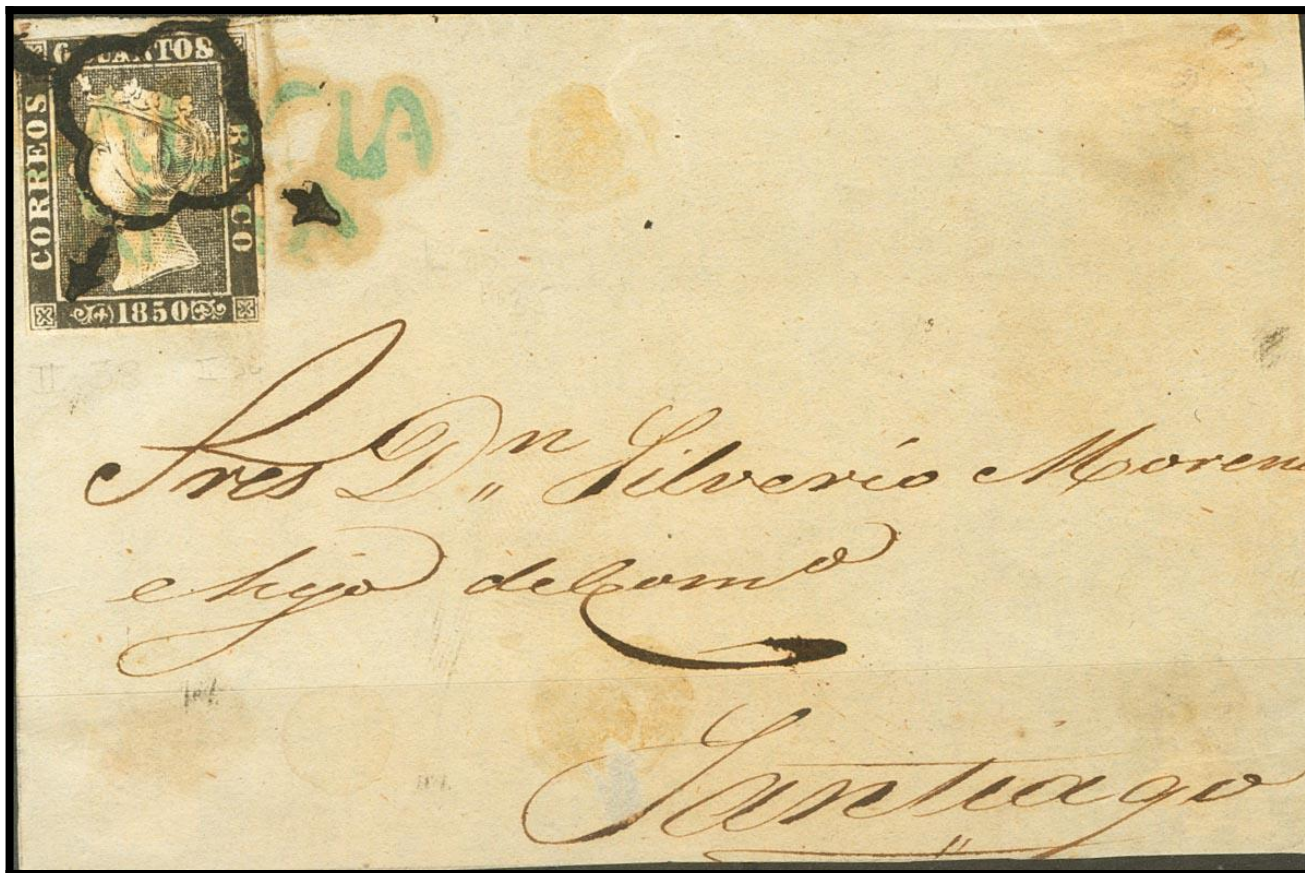 6 CUARTOS
CORREOS
FRANCO
1850
CIA
A
Sres Dn Silverio Moreno
é hijo del Como
Santiago